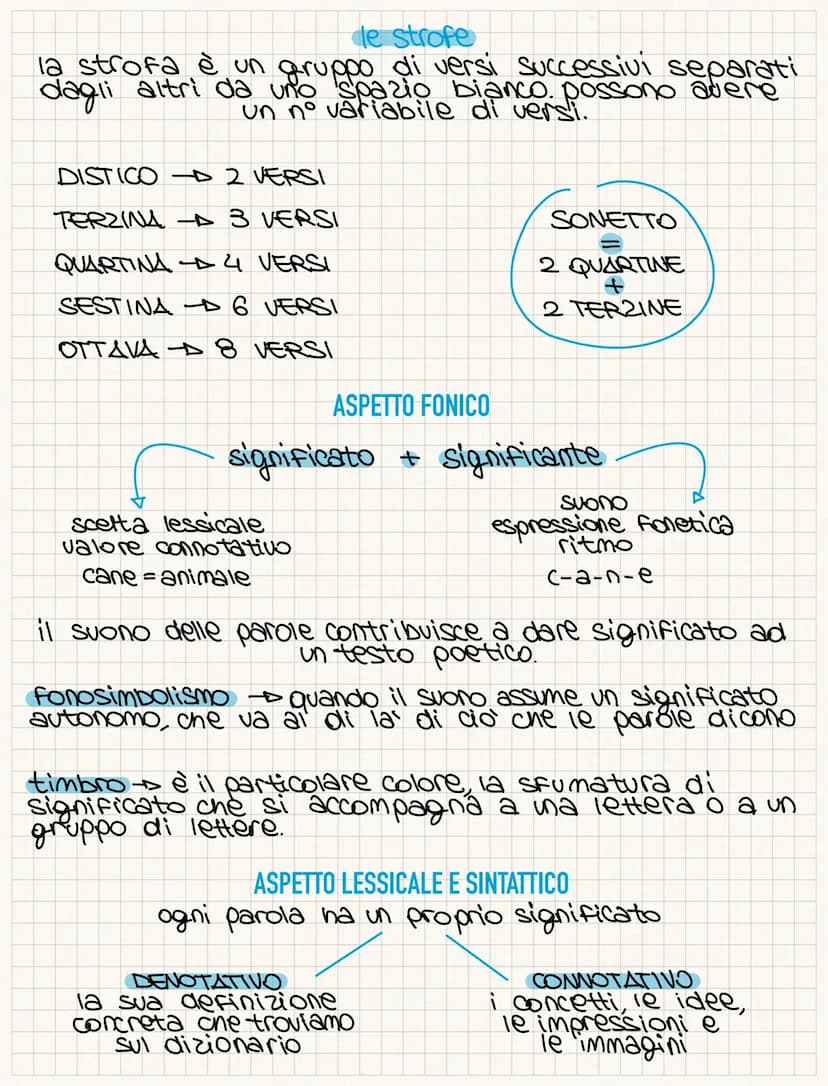 le strofe
la strofa è un gruppo di versi successivi separati
dagli altri da uno spazio bianco. possono avere
un n° variabile di versi.
DISTICO → 2 VERSI
TERZINA → 3 VERSI
QUARTINA → 4 VERSI
SESTINA → 6 VERSI
OTTAVA → 8 VERSI
SONETTO
=
2 QUARTINE
+
2 TERZINE
ASPETTO FONICO
significato + significante
scelta lessicale
valore connotativo
cane = animale
suono
espressione fonetica
ritmo
c-a-n-e
il suono delle parole contribuisce a dare significato ad
un testo poetico.
fonosimbolismo → quando il suono assume un significato
autonomo, che va al di la' di cio' che le parole dicono
timbro → è il particolare colore, la sfumatura di
significato che si accompagna a una lettera o a un
gruppo di lettere.
ASPETTO LESSICALE E SINTATTICO
ogni parola ha un proprio significato
DENOTATIVO
la sua definizione
concreta che troviamo
sul dizionario
CONNOTATIVO
i concetti, le idee,
le impressioni e
le immagini